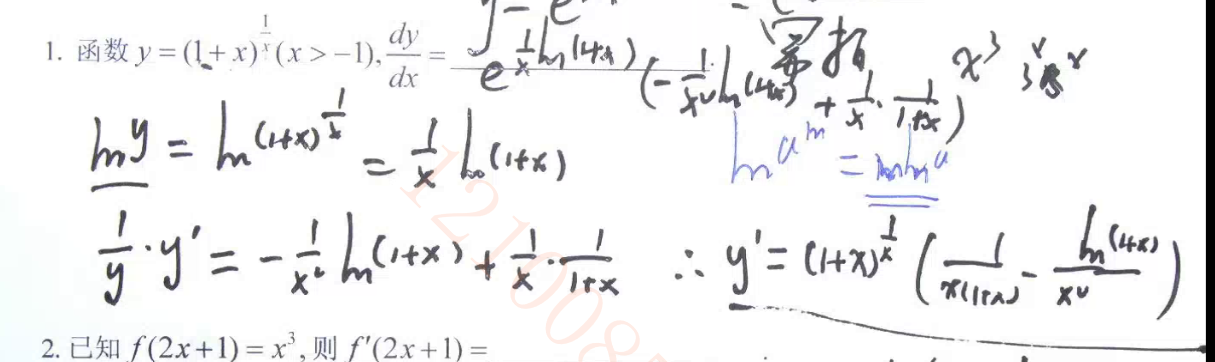 y = e
1. 函数 y = (1+x)^{1/x} (x > -1), dy/dx = e^{1/x ln(1+x)} (-1/x² ln(1+x) + 1/x · 1/(1+x))
幂指 x³ 3ˣ xˣ
ln y = ln(1+x)^{1/x} = 1/x ln(1+x)
ln a^m = m ln a
1/y · y' = -1/x² ln(1+x) + 1/x · 1/(1+x) ∴ y' = (1+x)^{1/x} (1/(x(1+x)) - ln(1+x)/x²)
2. 已知 f(2x+1) = x³, 则 f'(2x+1) =